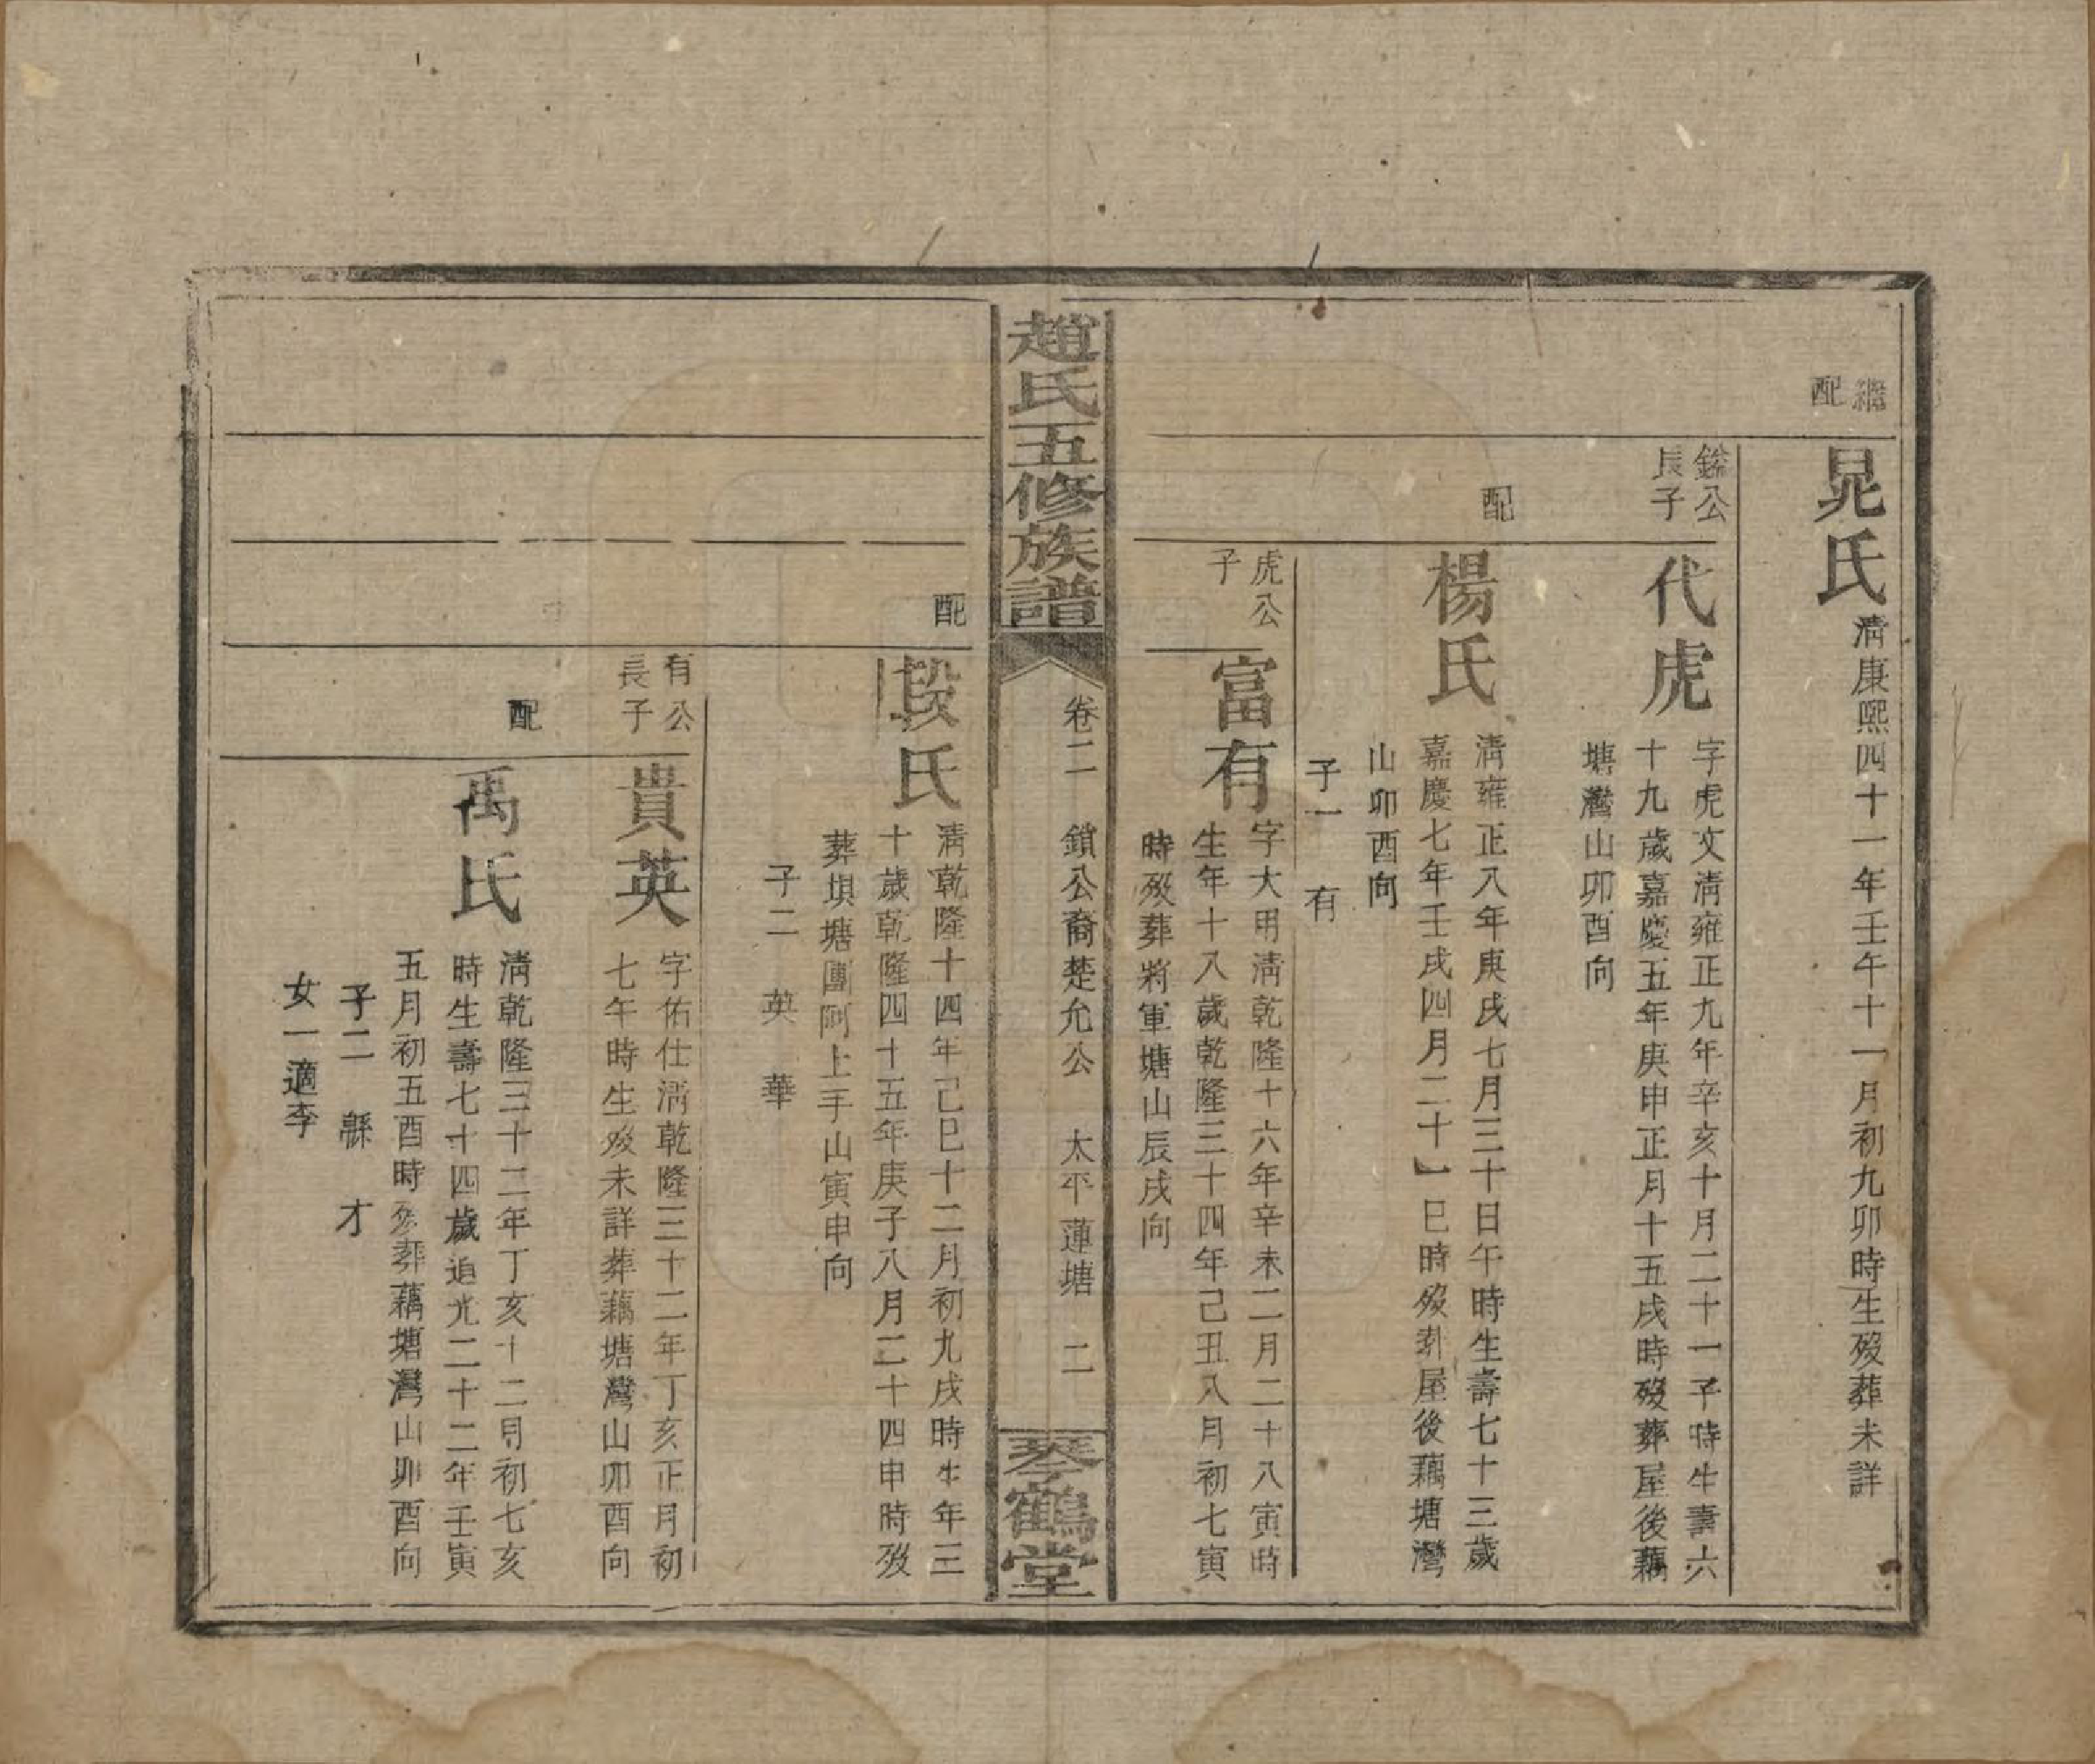 繼配
晁氏
清康熙四十一年壬午十一月初九卯時生歿葬未詳
公長子
代虎
字虎文清雍正九年辛亥十月二十一子時生壽六
十九歲嘉慶五年庚申正月十五戌時歿葬屋後藕
塘灣山卯酉向
配
楊氏
清雍正八年庚戌七月三十日午時生壽七十三歲
嘉慶七年壬戌四月二十一巳時歿葬屋後藕塘灣
山卯酉向
子一 有
虎公子
富有
字大用清乾隆十六年辛未二月二十八寅時
生年十八歲乾隆三十四年己丑八月初七寅
時歿葬將軍塘山辰戌向
趙氏五修族譜
卷二 鎖公裔楚允公 太平蓮塘 二
琴鶴堂
配
段氏
清乾隆十四年己巳十二月初九戌時生年三
十歲乾隆四十五年庚子八月二十四申時歿
葬塤塘團阿上手山寅申向
子二 英 華
有公長子
貴英
字佑仕清乾隆三十二年丁亥正月初
七午時生歿未詳葬藕塘灣山卯酉向
配
禹氏
清乾隆三十二年丁亥十二月初七亥
時生壽七十四歲道光二十二年壬寅
五月初五酉時歿葬藕塘灣山卯酉向
子二 繇 才
女一適李